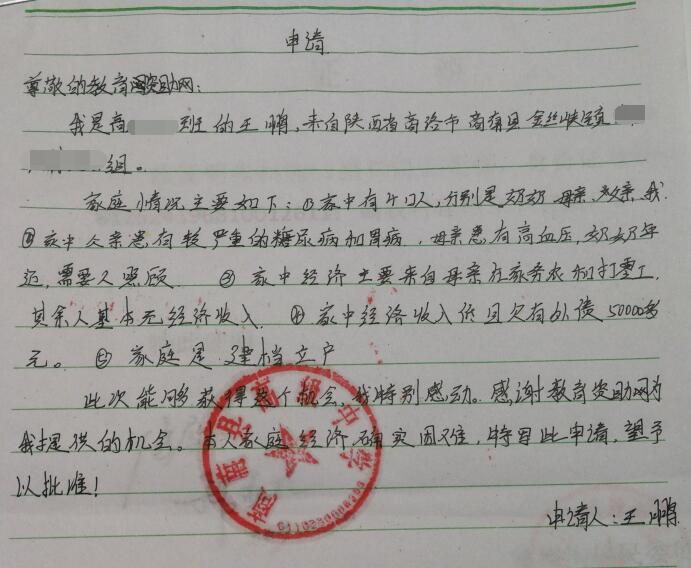 申请
尊敬的教育资助网:
我是高 班的王鹏,来自陕西省商洛市商南县金丝峡镇
组。
家庭情况主要如下:①家中有4口人,分别是奶奶 母亲,父亲,我.
②家中父亲患有较严重的糖尿病和胃病,母亲患有高血压,奶奶年
迈,需要人照顾 ③家中经济主要来自母亲在家务农和打零工,
其余人基本无经济收入.④家中经济收入低且欠有外债50000多
元。⑤家庭是建档立户
此次能够获得这个机会,我特别感动。感谢教育资助网为
我提供的机会。本人家庭经济确实困难,特写此申请,望予
以批准!
申请人:王鹏
县高级中学